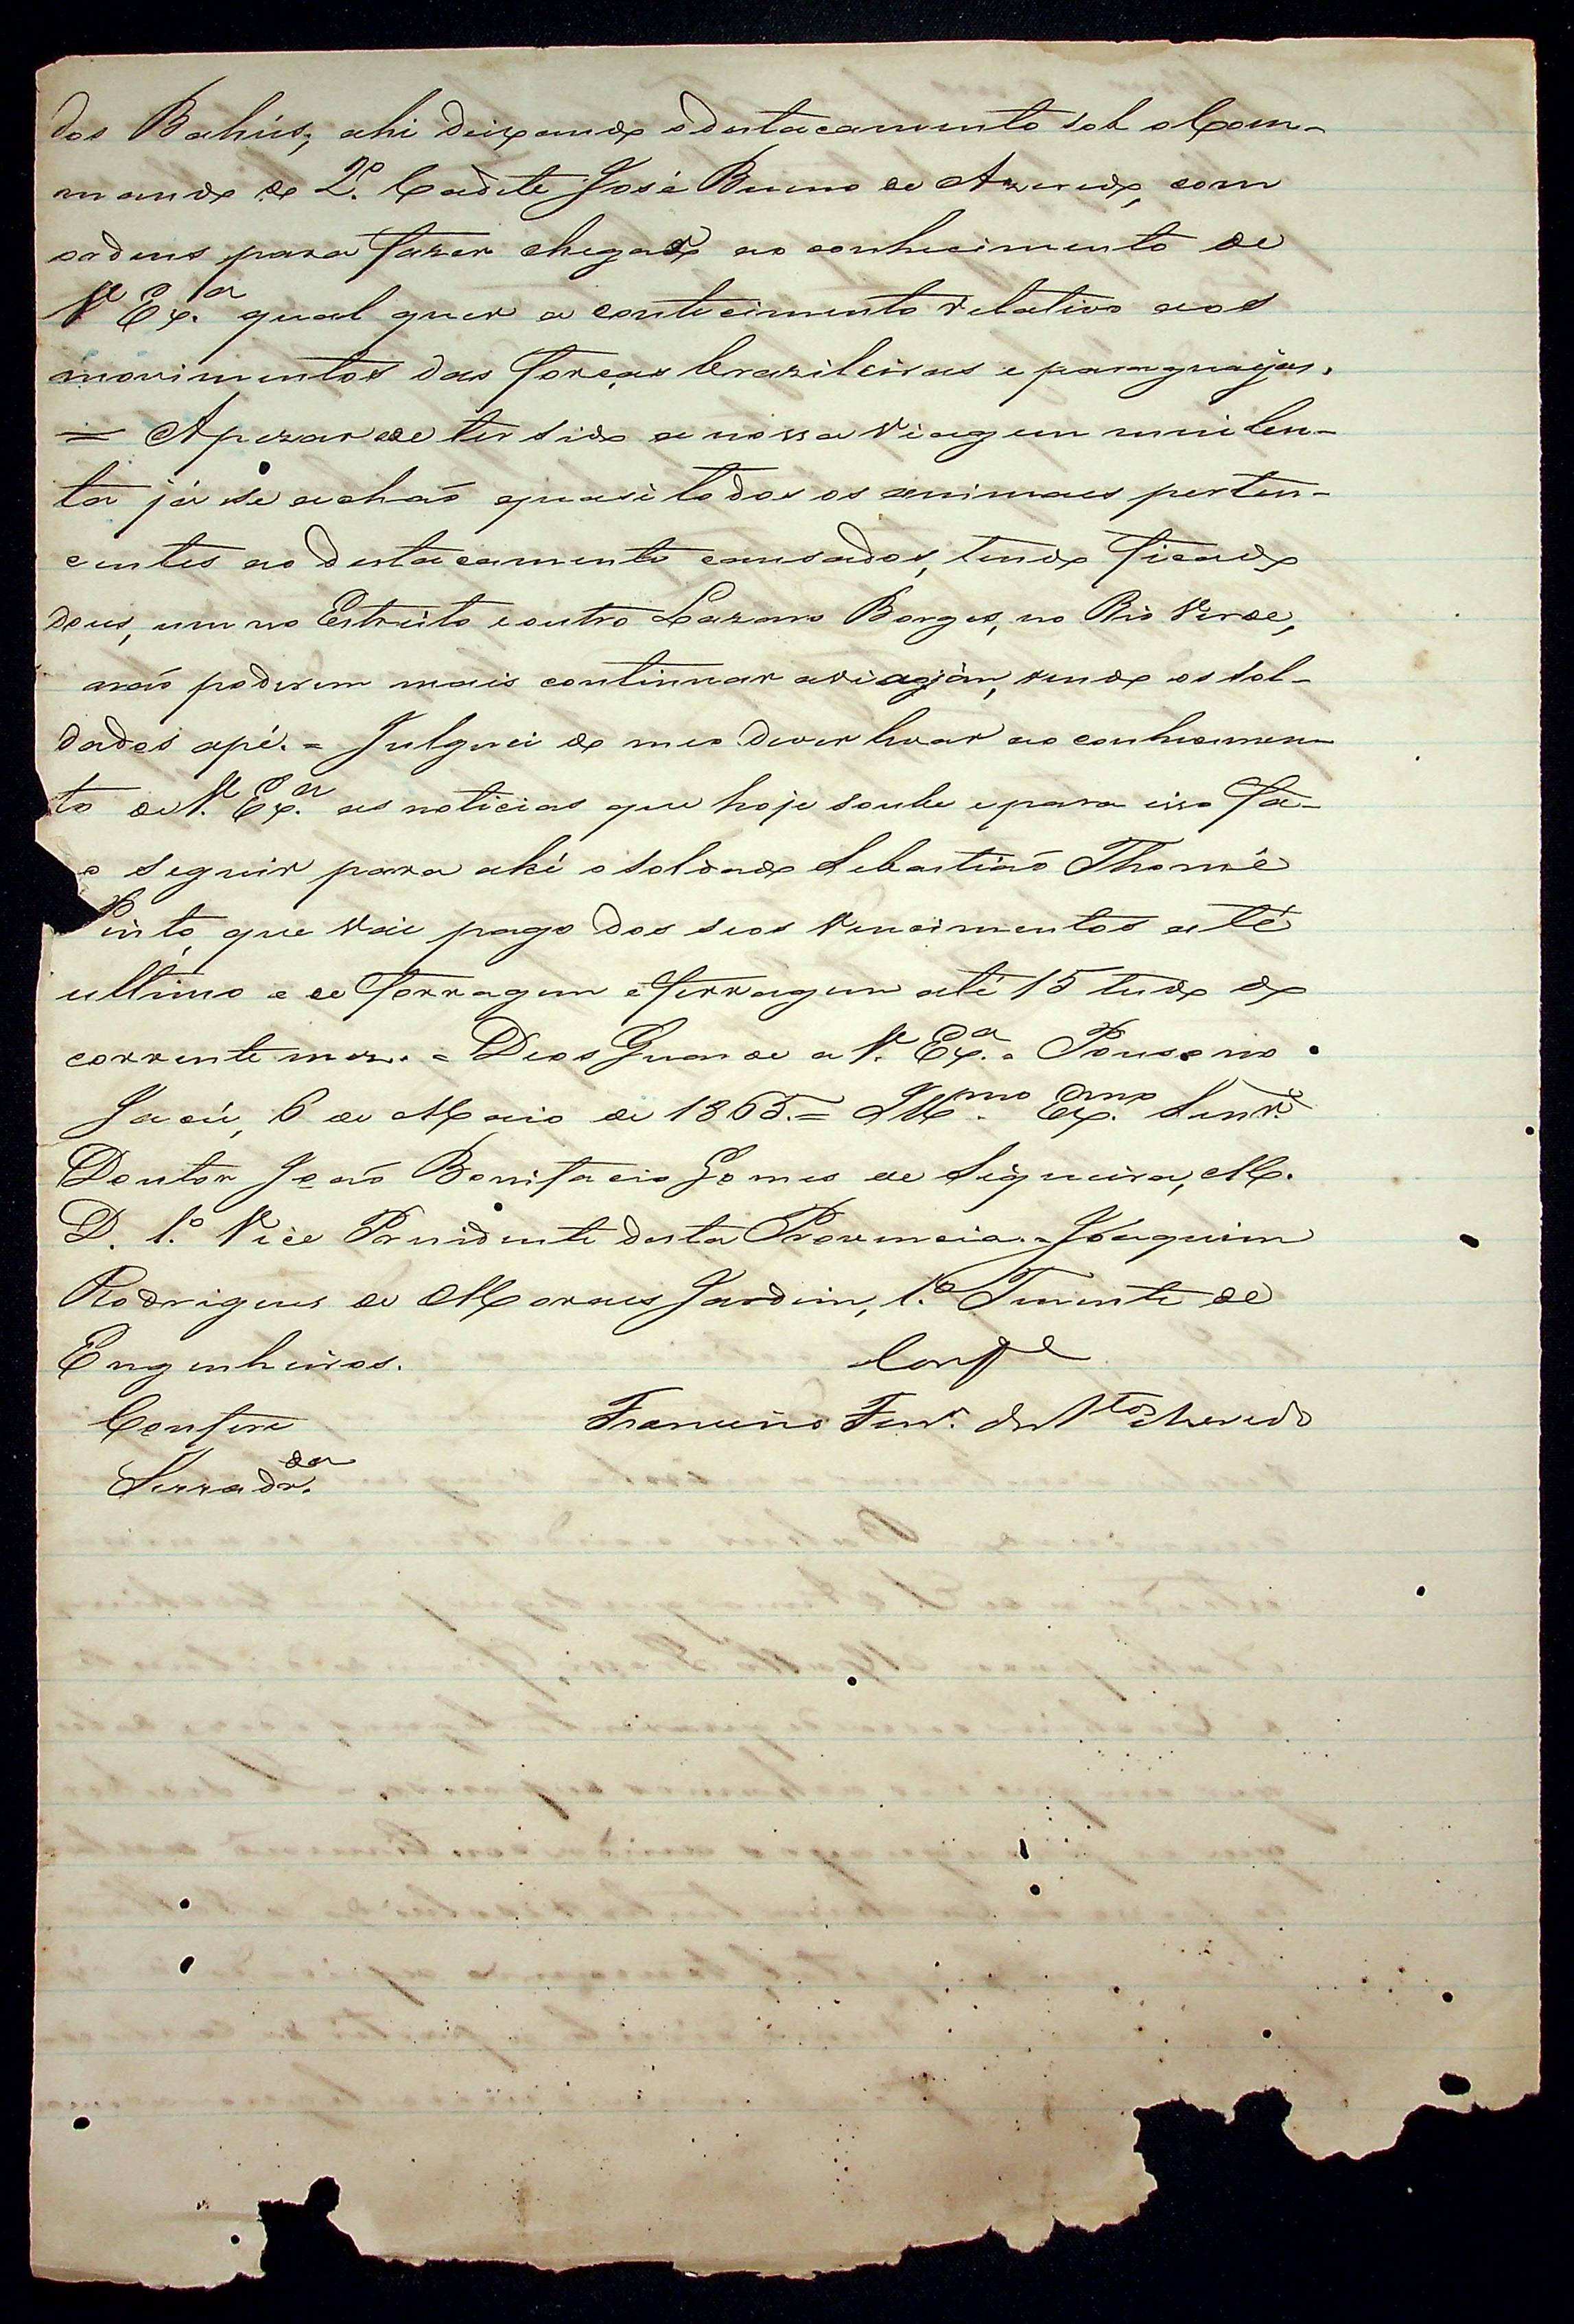 dos Bahús; ahi deixando o destacamento sob o Com-
mando do 2º. Cadete José Bueno de Azeredo, com
ordens para fazer chegar ao conhecimento de
V Exª. qual quer a contecimento relativo aos
movimentos das forças brazileiras e paraguayas.
= Apezar de ter sido a nossa viagem mui len-
ta já se achaõ quasi todos os animaes perten-
centes ao destacamento cansados, tendo ficado
dous, um no Estreito e outro Lazaro Borges, no Rio Verde,
naõ poderem mais continuar a viagem, vendo os sol-
dados apé. = Julguei do meo dever levar ao conhecimen-
to de V. Exª. as noticias que hoje soube e para isso fa-
o seguir para ahi o soldado Sebastiaõ Thomé
Pinto, que vai pago dos seos vencimentos até
ultimo e de forragem e ferragem até 15 tudo do
corrente mez. = Deos Guarde a V. Exª. = Pouso no
Jacú, 6 de Maio de 1865. = Illmo. Exmo. Senr.
Doutor Joaõ Bonifacio Gomes de Siqueira, M.
D. 1º. Vice Presidente desta Provincia. = Joaquim
Rodrigues de Moraes Jardim, 1º. Tenente de
Engenheiros.
Conf.e
Confere
Francisco Ferr. dos Stos Azevedo
Serradr.